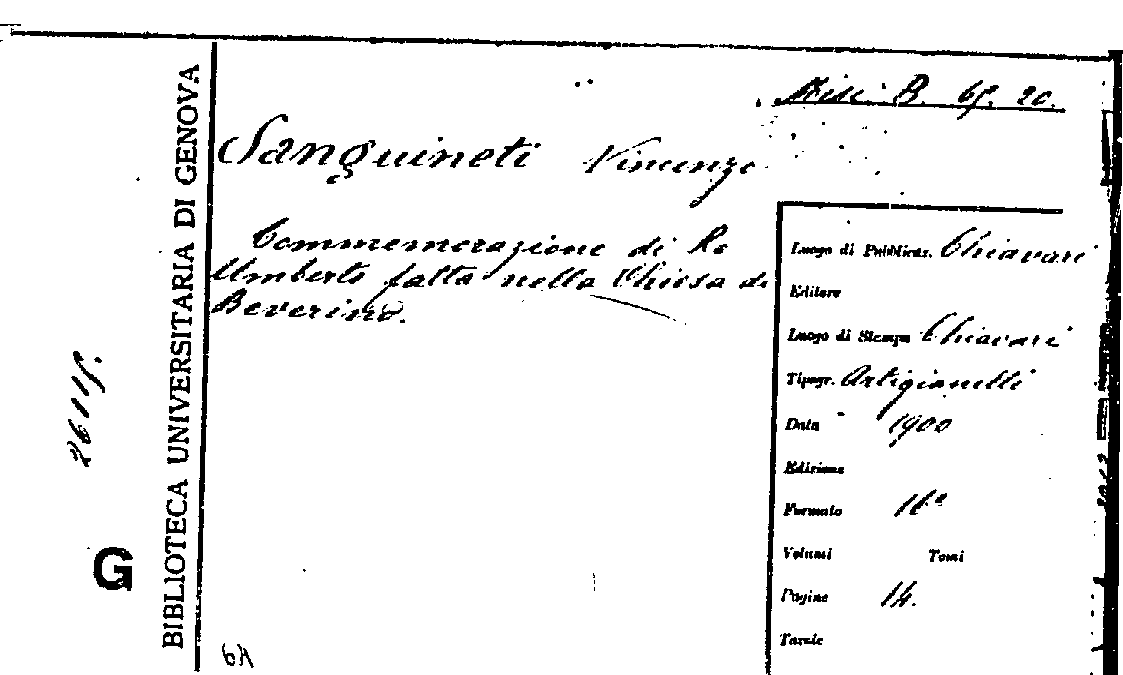 Misc. B. 65. 20.
Sanguineti Vincenzo
Commemorazione di Re
Umberto fatta nella Chiesa di
Beverino.
Luogo di Pubblicaz. Chiavari
Editore
Luogo di Stampa Chiavari
Tipogr. Artigianelli
Data 1900
Edizione
Formato 16º
Volumi Tomi
Pagine 14.
Tavole
BIBLIOTECA UNIVERSITARIA DI GENOVA
G